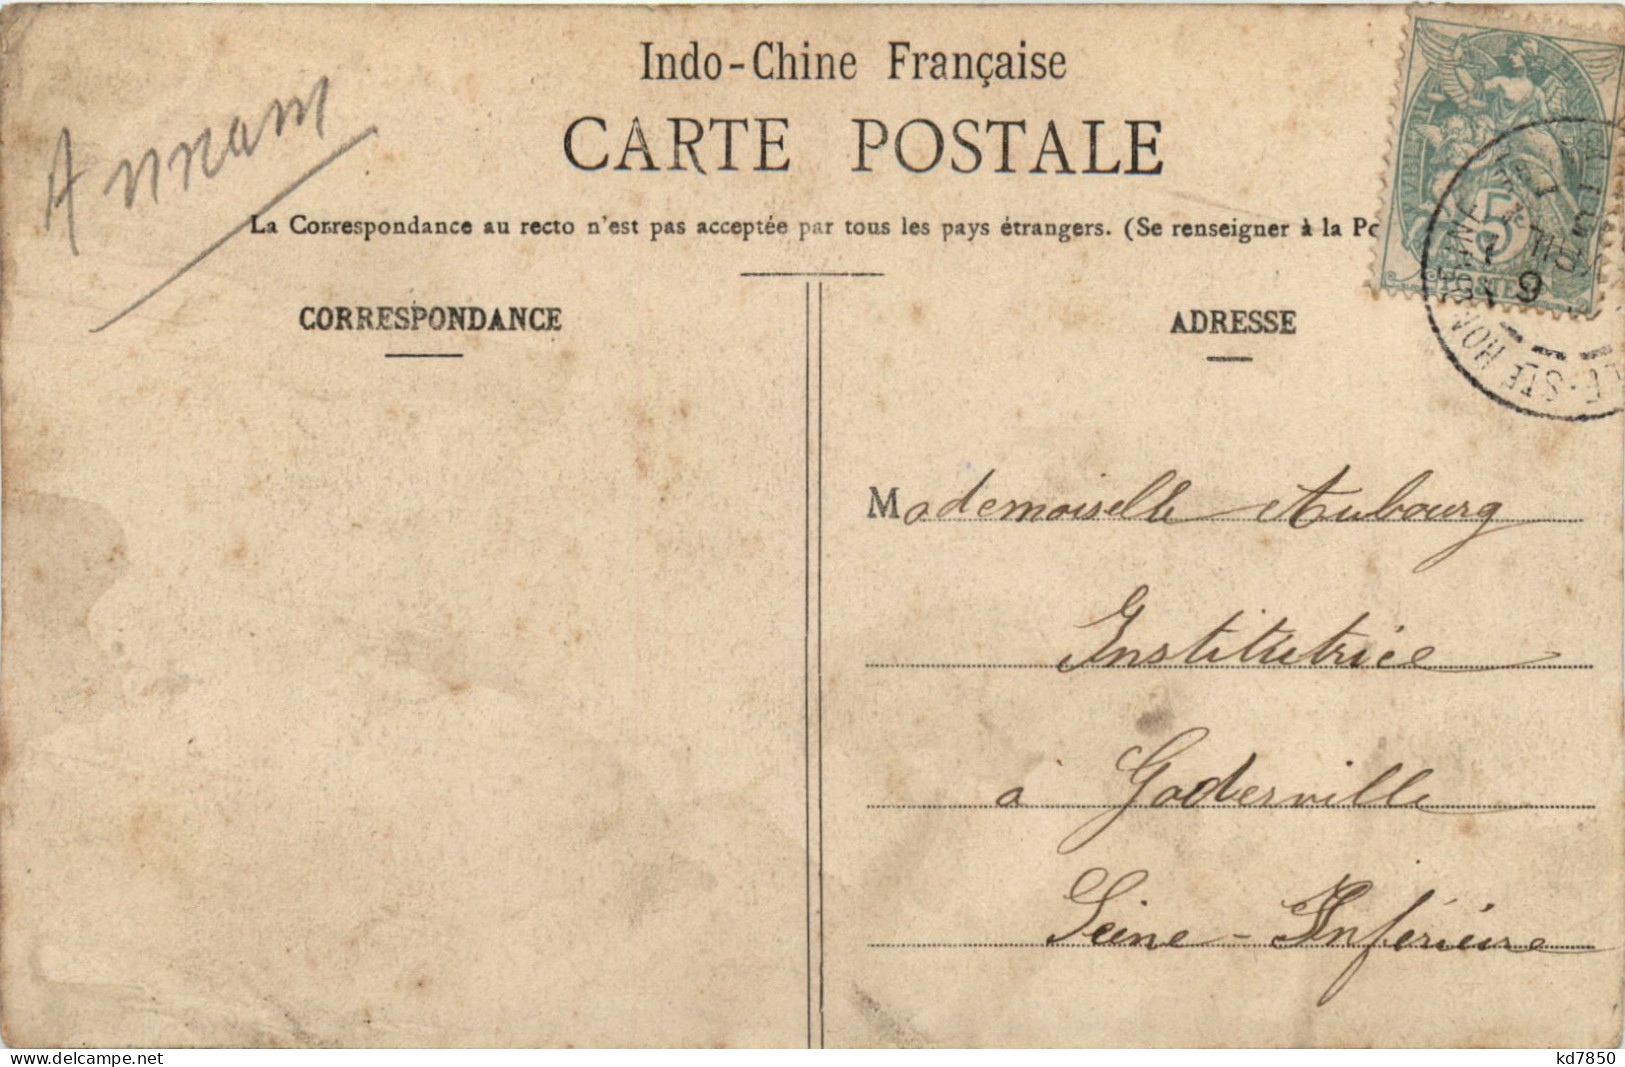 Indo-Chine Française
CARTE POSTALE
Annam
La Correspondance au recto n'est pas acceptée par tous les pays étrangers. (Se renseigner à la Po
CORRESPONDANCE
ADRESSE
5
POSTES
STE HONORINE
Mademoiselle Aubourg
Institutrice
à Goderville
Seine-Inférieure
www.delcampe.net
kd7850